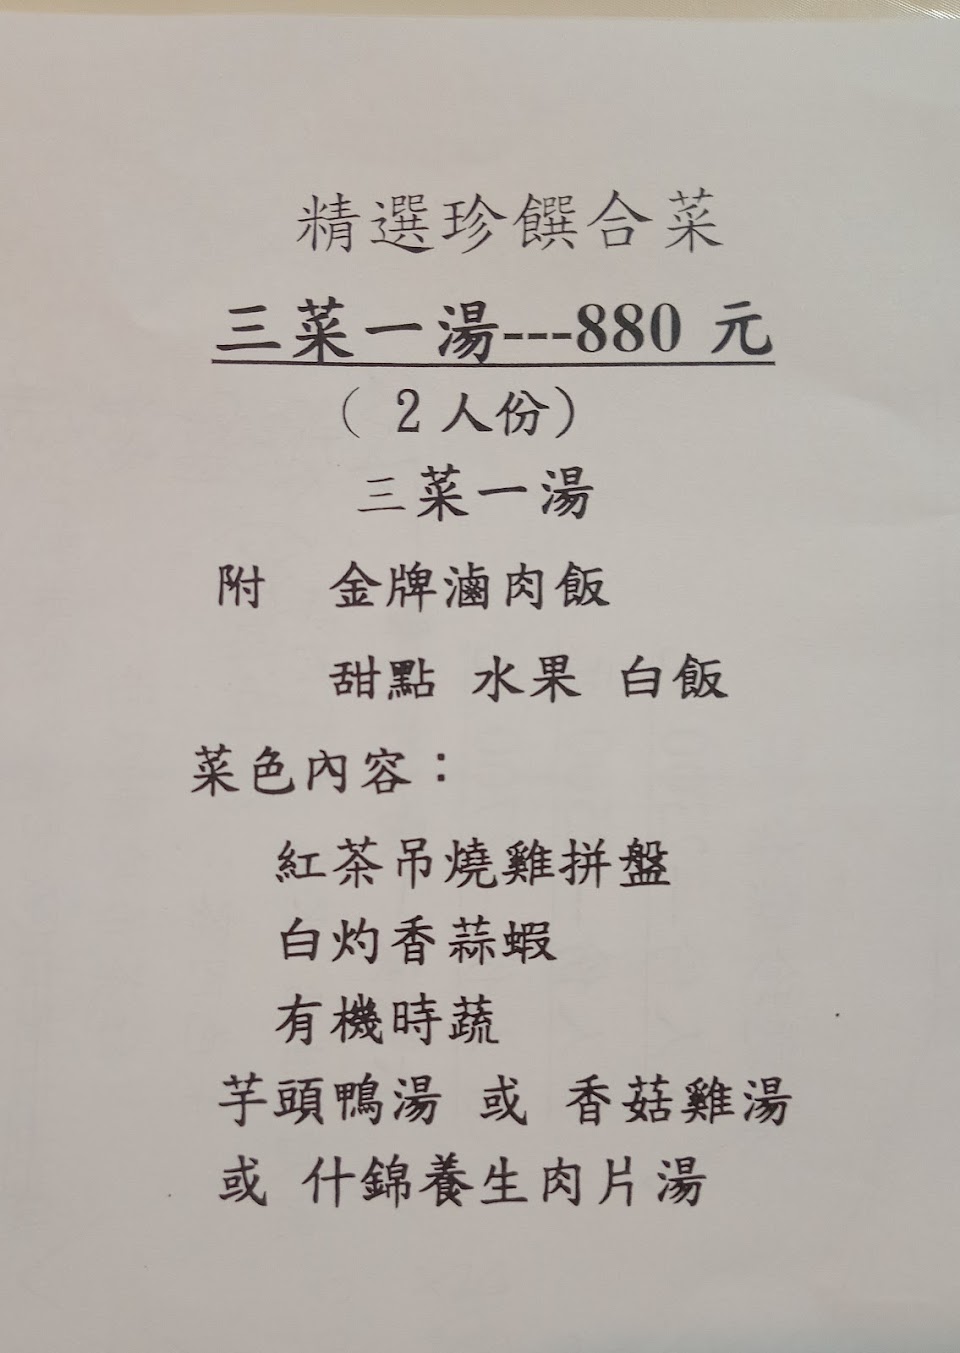 精選珍饌合菜
三菜一湯---880 元
（ 2 人份）
三菜一湯
附　金牌滷肉飯
甜點 水果 白飯
菜色內容：
紅茶吊燒雞拼盤
白灼香蒜蝦
有機時蔬
芋頭鴨湯 或 香菇雞湯
或 什錦養生肉片湯